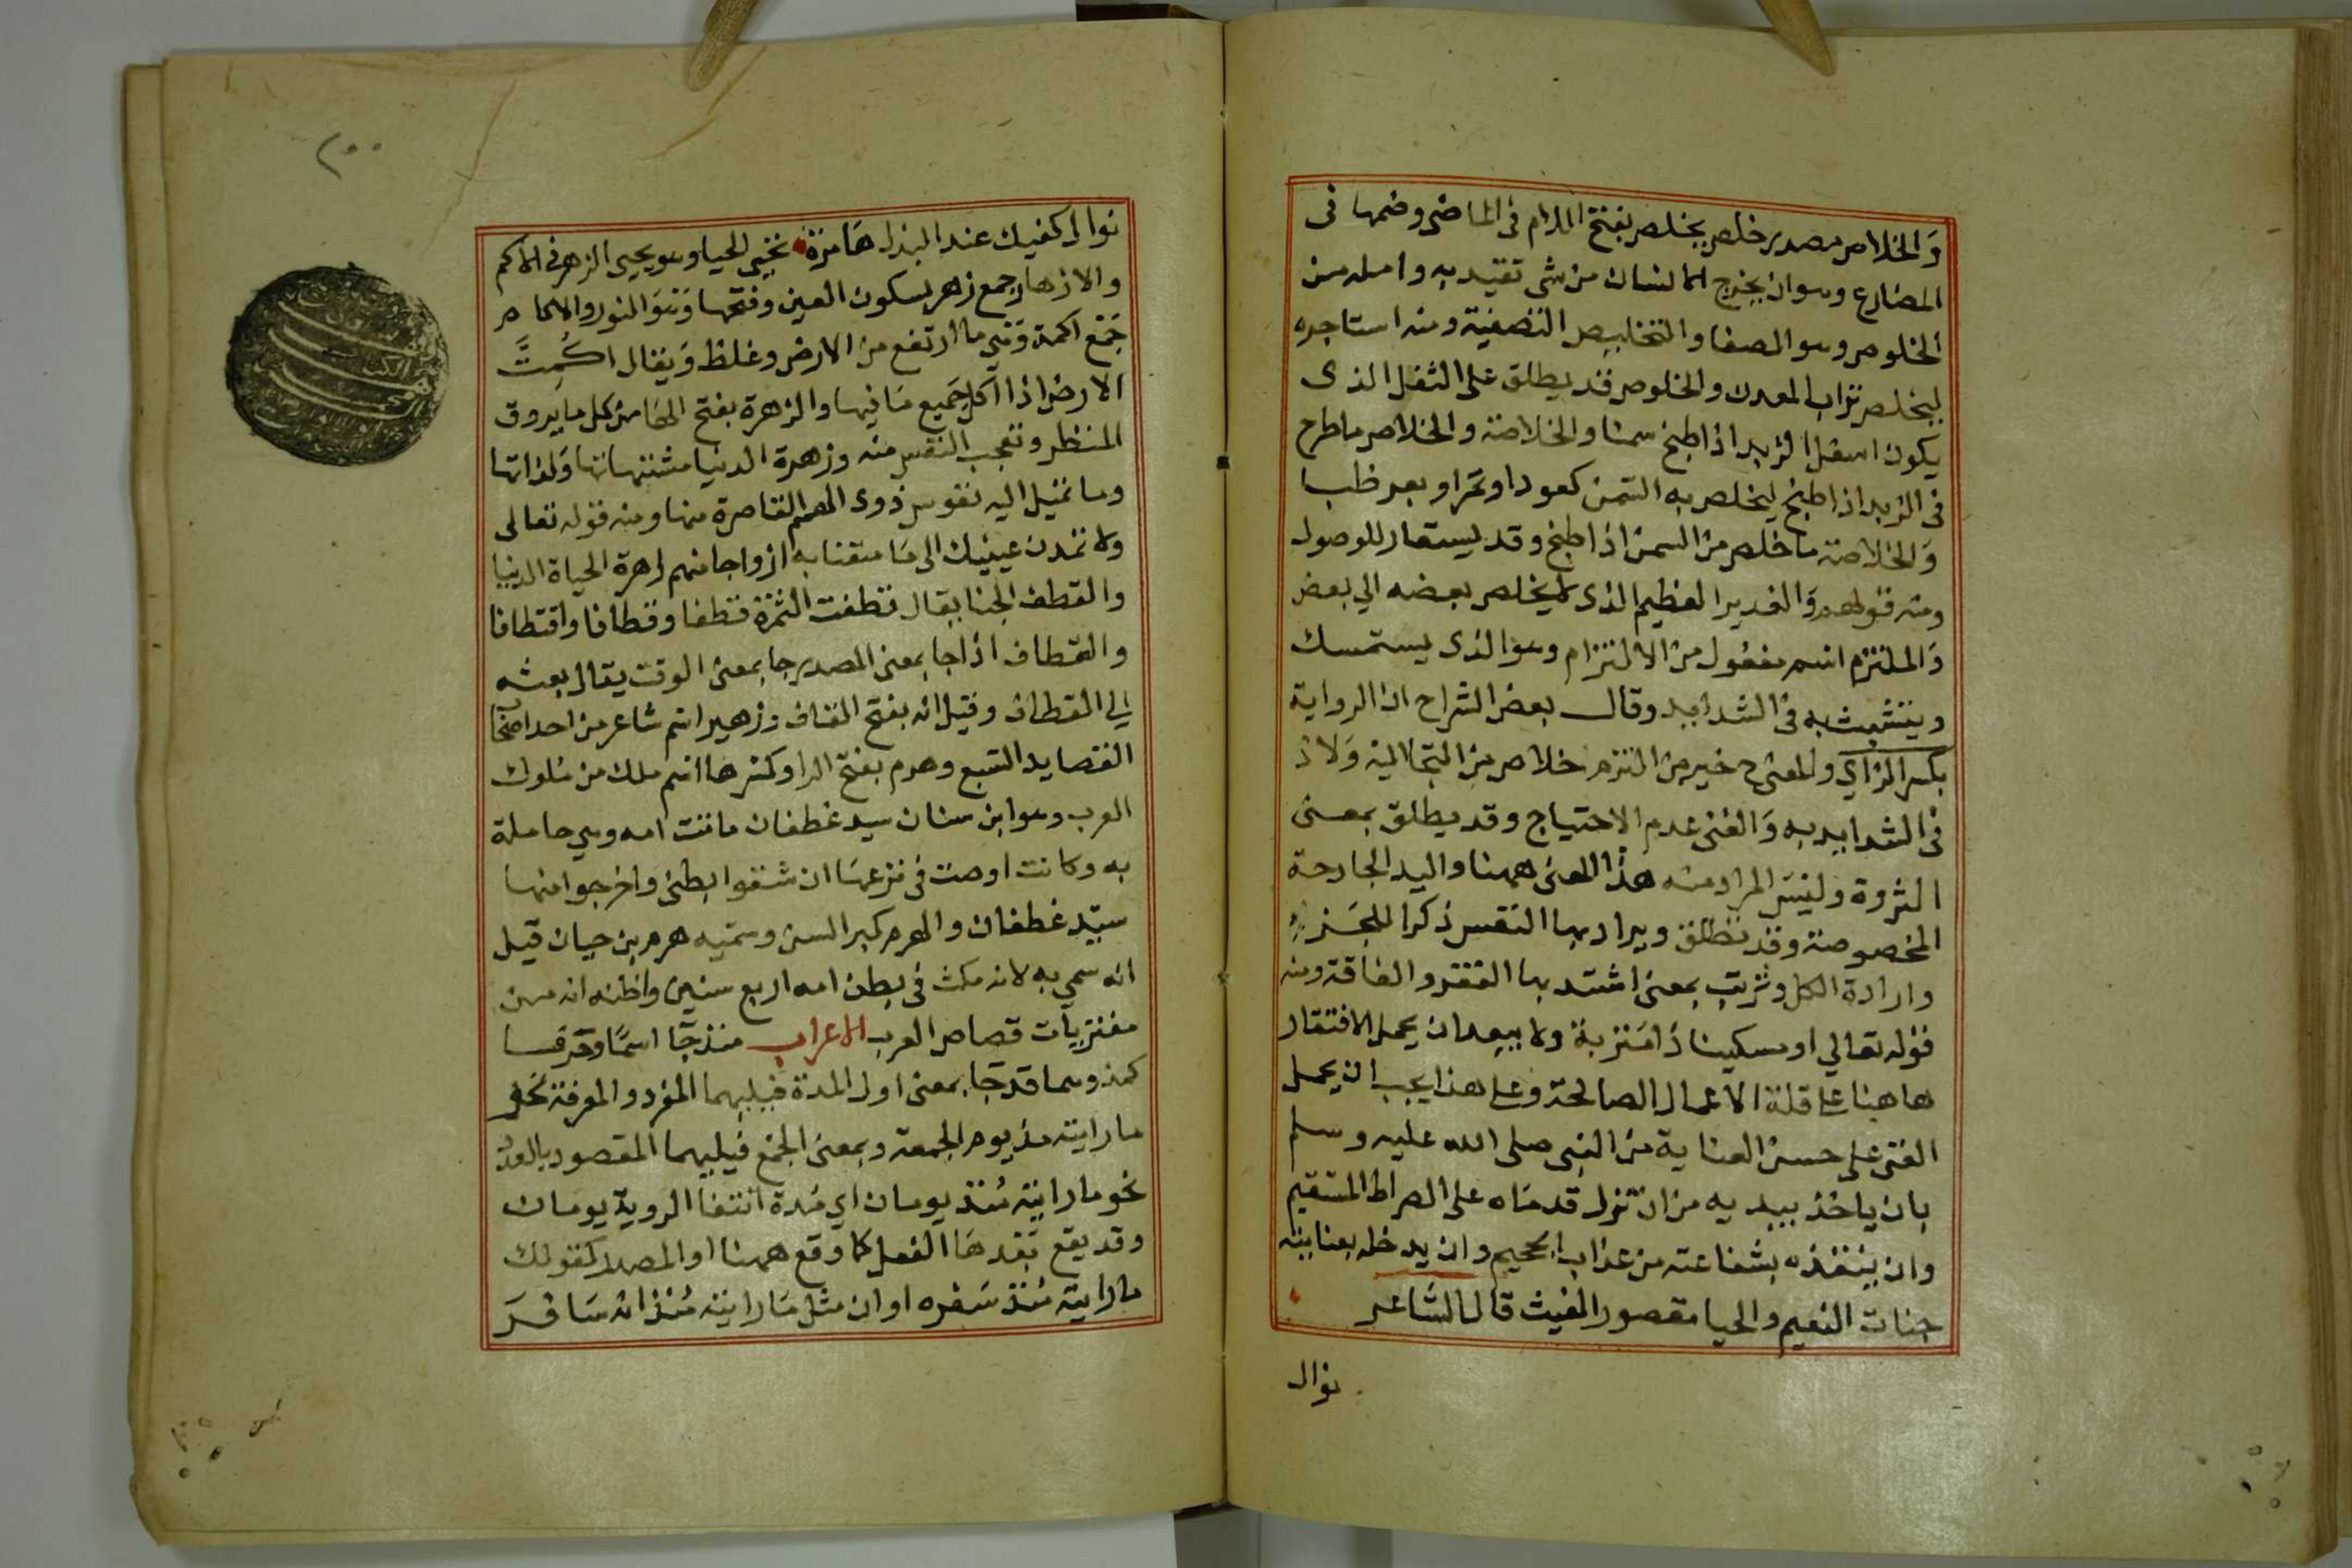 وَالخلاص مصدر خلص يخلص بفتح اللام في الماضى وضمها فى
المضارع وهو ان يخرج الانسان من شى تقيد به واصله من
الخلوص وهو الصفا والتخليص التصفية ومنه استاجره
ليخلص تراب المعدن والخلوص قد يطلق على الثفل الذى
يكون اسفل الزبد اذا طبخ سمنا والخلاصة والخلاص ما طرح
فى الزبد اذا طبخ ليخلص به السمن كعود او تمر او بعر ظبا
وَالخلاصة ما خلص من السمن اذا طبخ وقد يستعار للوصول
ومنه قولهم وَالغدير العظيم الذى لم يخلص بعضه الي بعض
وَالملتزم اسم مفعول من الالتزام وهو الذى يستمسك
ويتشبث به فى الشدايد وقال بعض الشراح ان الرواية
بكسر الزاي والمعنى ح خير من التزم خلاص من التجا اليه وَلاذ
فى الشدايد به وَالغنى عدم الاحتياج وقد يطلق بمعنى
الثروة وليس المراد منه هذا المعنى ههنا واليد الجارحة
المخصوصة وقد تطلق ويراد بها النفس ذكرا للجزء
وارادة الكل وتربت بمعنى اشتد بها الفقر والفاقة ومنه
قوله تعالي او مسكينا ذا متربة ولا يبعد ان يحمل الافتقار
هاهنا على قلة الاعمال الصالحة وعلى هذا يجب ان يحمل
الغنى على حسن العناية من النبى صلى الله عليه وسلم
بان ياخذ بيديه من ان تزل قدماه على الصراط المستقيم
وان ينقذه بشفاعته من عذاب الجحيم وان يدخله بعنايته
جنات النعيم والحيا مقصور الغيث قال الشاعر
نوال
٢٠٠
نوال كفيك عند البذل هامزة تحيى الحيا وهو يحيى الزهر فى الاكم
والازهار جمع زهر بسكون العين وفتحها وَهوَ النور والاكام
جَمع اكمة وَهي ما ارتفع من الارض وغلظ وَيقال اكُمِتَّ
الارض اذا اكل جَميع مَا فيها والزهرة بفتح الهَا من كل ما يروق
المنظر وتعجب النفس منه وزهرة الدنيا مشتهياتها وَلذاتها
وما تميل اليه نفوس ذوى الهمم القاصرة منها ومنه قوله تعالى
ولا تمدن عينيك الى مَا متعنا به ازواجا منهم زهرة الحياة الدنيا
والقطف الجنا يقال قطفت الثمرة قطفا وقطافا واقتطافا
والقطاف اذا جا بمعنى المصدر جا بمعنى الوقت يقال بعثه
الي القطاف وقيل انه بفتح القاف وزهير اسم شاعر من احد اصحاب
القصايد السبع وهرم بفتح الرا وكسرها اسم ملك من مُلوك
العرب وهو ابن سنان سيد غطفان ماتت امه وهي حاملة
به وكانت اوصت فى نزعها ان شقوا بطنى واخرجوا منها
سيّد غطفان والهرم كبر السن وسميه هرم بن حيان قيل
انه سمي به لانه مكث فى بطن امه اربع سنين واظنه انه من
مفتريات قصاص العرب الاعراب منذ جَا اسمًا وحَرفا
كمذ وهما قد جَا بمعنى اول المدة فيليهما المفرد والمعرفة نحو
ما رايته مذ يوم الجمعة وبمعنى الجمع فيليهما المقصود بالعدد
نحو ما رايته مُنذ يومان اي مُدة انتفا الروية يومان
وقد يقع بَعدهَا الفعل كما وقع ههنا او المصدر كقولك
ما رايته مُنذ سَفره او ان مثل مَا رايته مُنذ انه سَافر